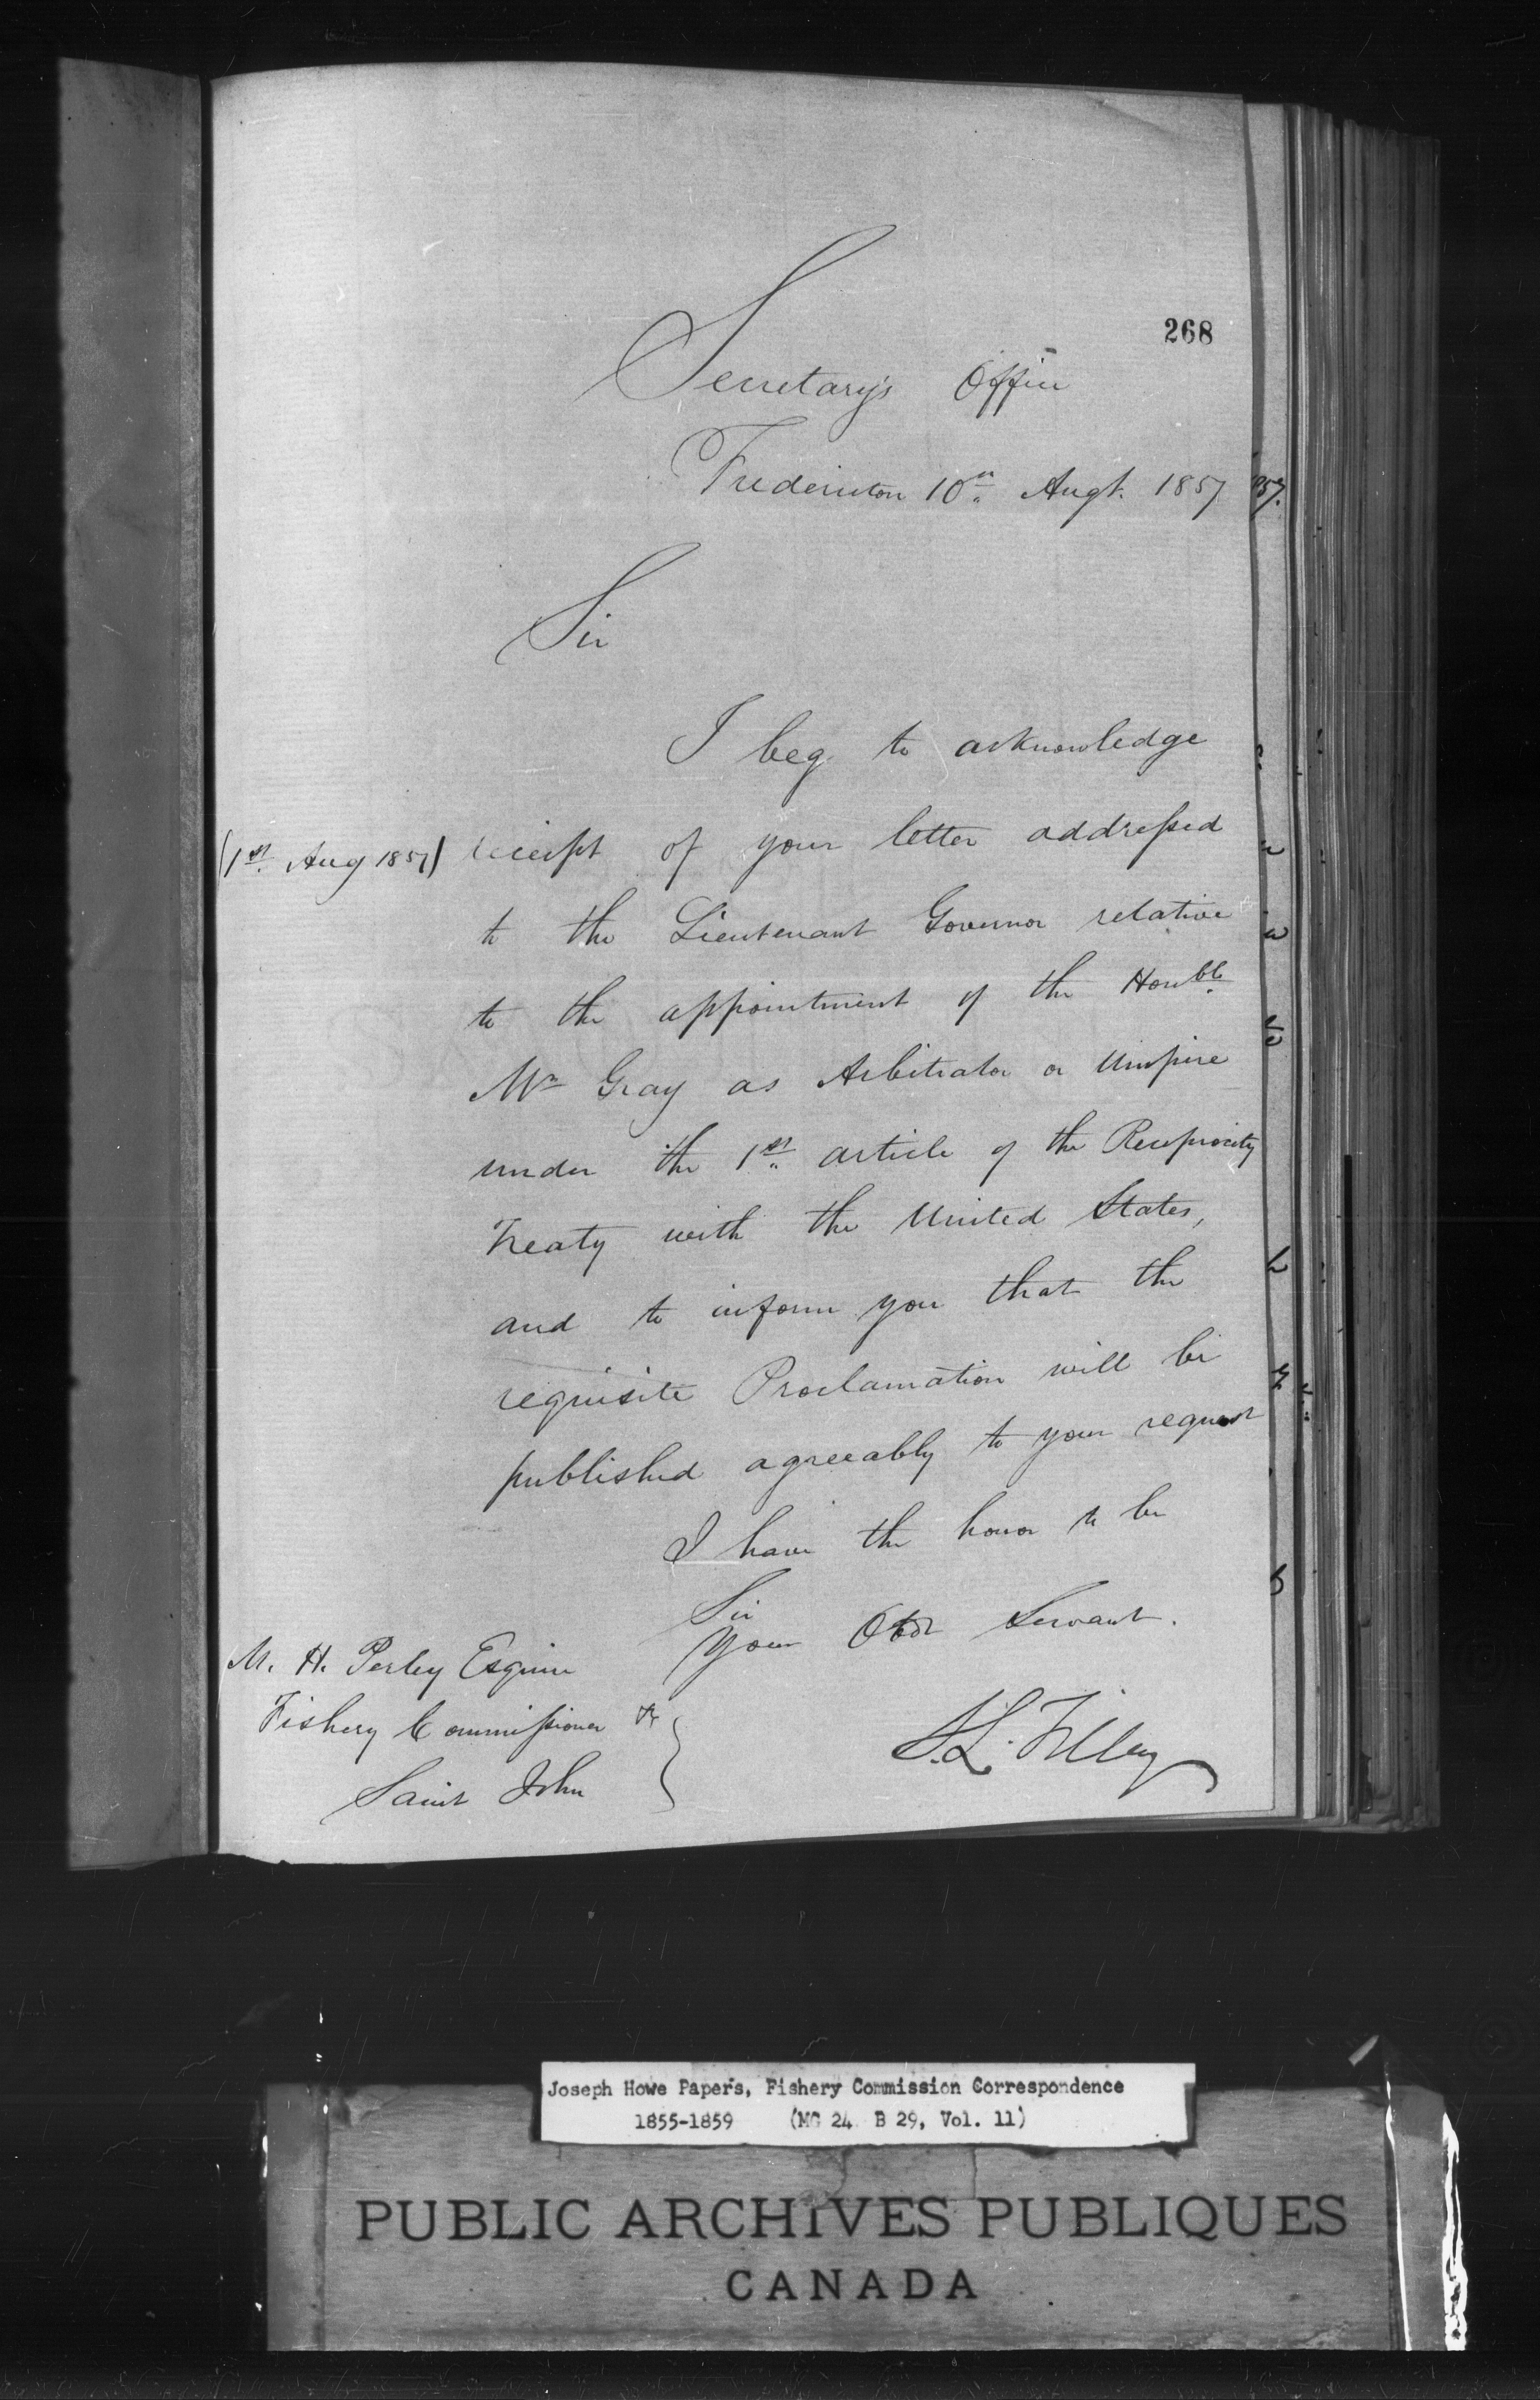 268
Secretary's Office
Fredericton 10th Augt. 1857
Sir
I beg to acknowledge
(1st. Aug 1857) receipt of your letter addressed
to the Lieutenant Governor relative
to the appointment of the Honble.
Mr Gray as Arbitrator or Umpire
under the 1st. article of the Reciprocity
Treaty with the United States,
and to inform you that the
requisite Proclamation will be
published agreeably to your request
I have the honor to be
Sir
Your Obdt Servant.
M. H. Perley Esquire
Fishery Commissioner &c
Saint John
S. L. Tilley
Joseph Howe Papers, Fishery Commission Correspondence
1855-1859 (MG 24 B 29, Vol. 11)
PUBLIC ARCHIVES PUBLIQUES
CANADA